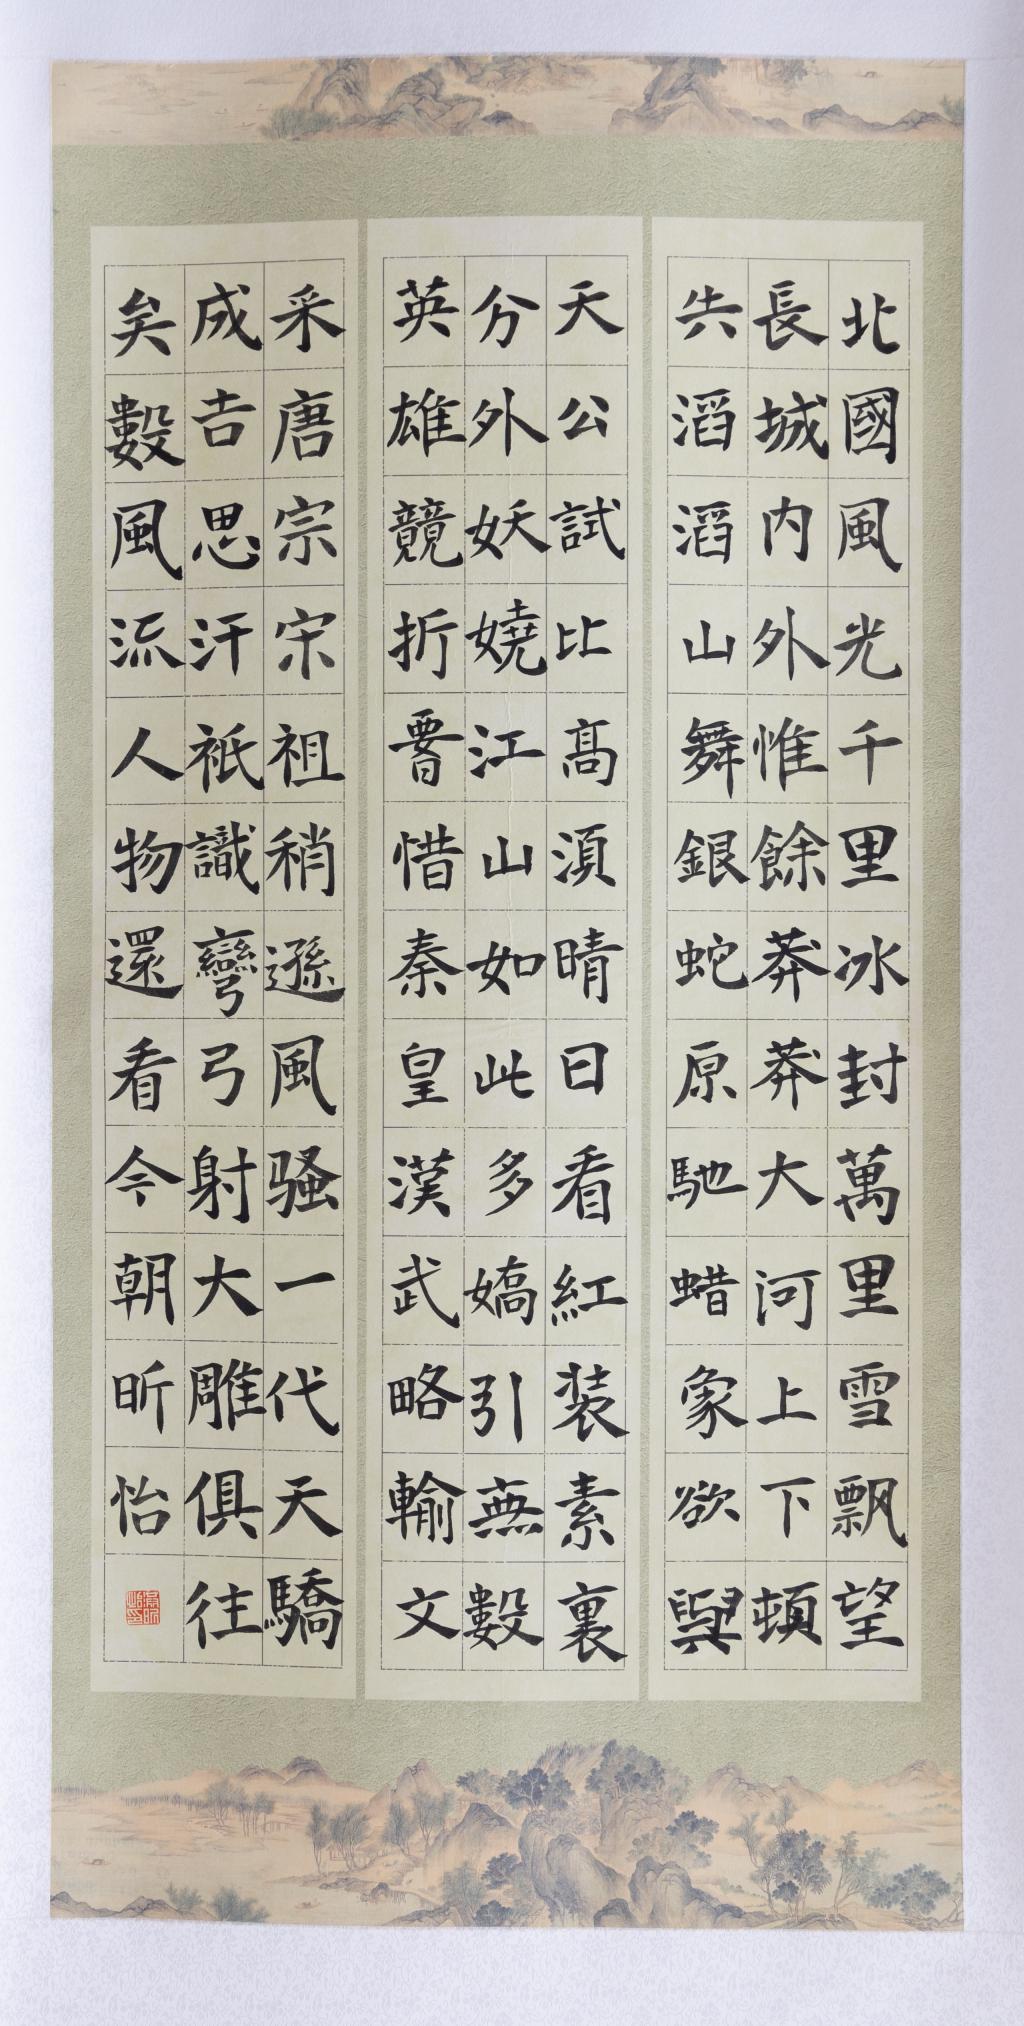 北國風光千里冰封萬里雪飘望
長城内外惟餘莽莽大河上下頓
失滔滔山舞銀蛇原馳蜡象欲與
天公試比髙湏晴日看紅装素裏
分外妖嬈江山如此多嬌引無數
英雄競折腰惜秦皇漢武略輸文
采唐宗宋祖稍遜風骚一代天驕
成吉思汗祇識彎弓射大雕俱往
矣數風流人物還看今朝昕怡